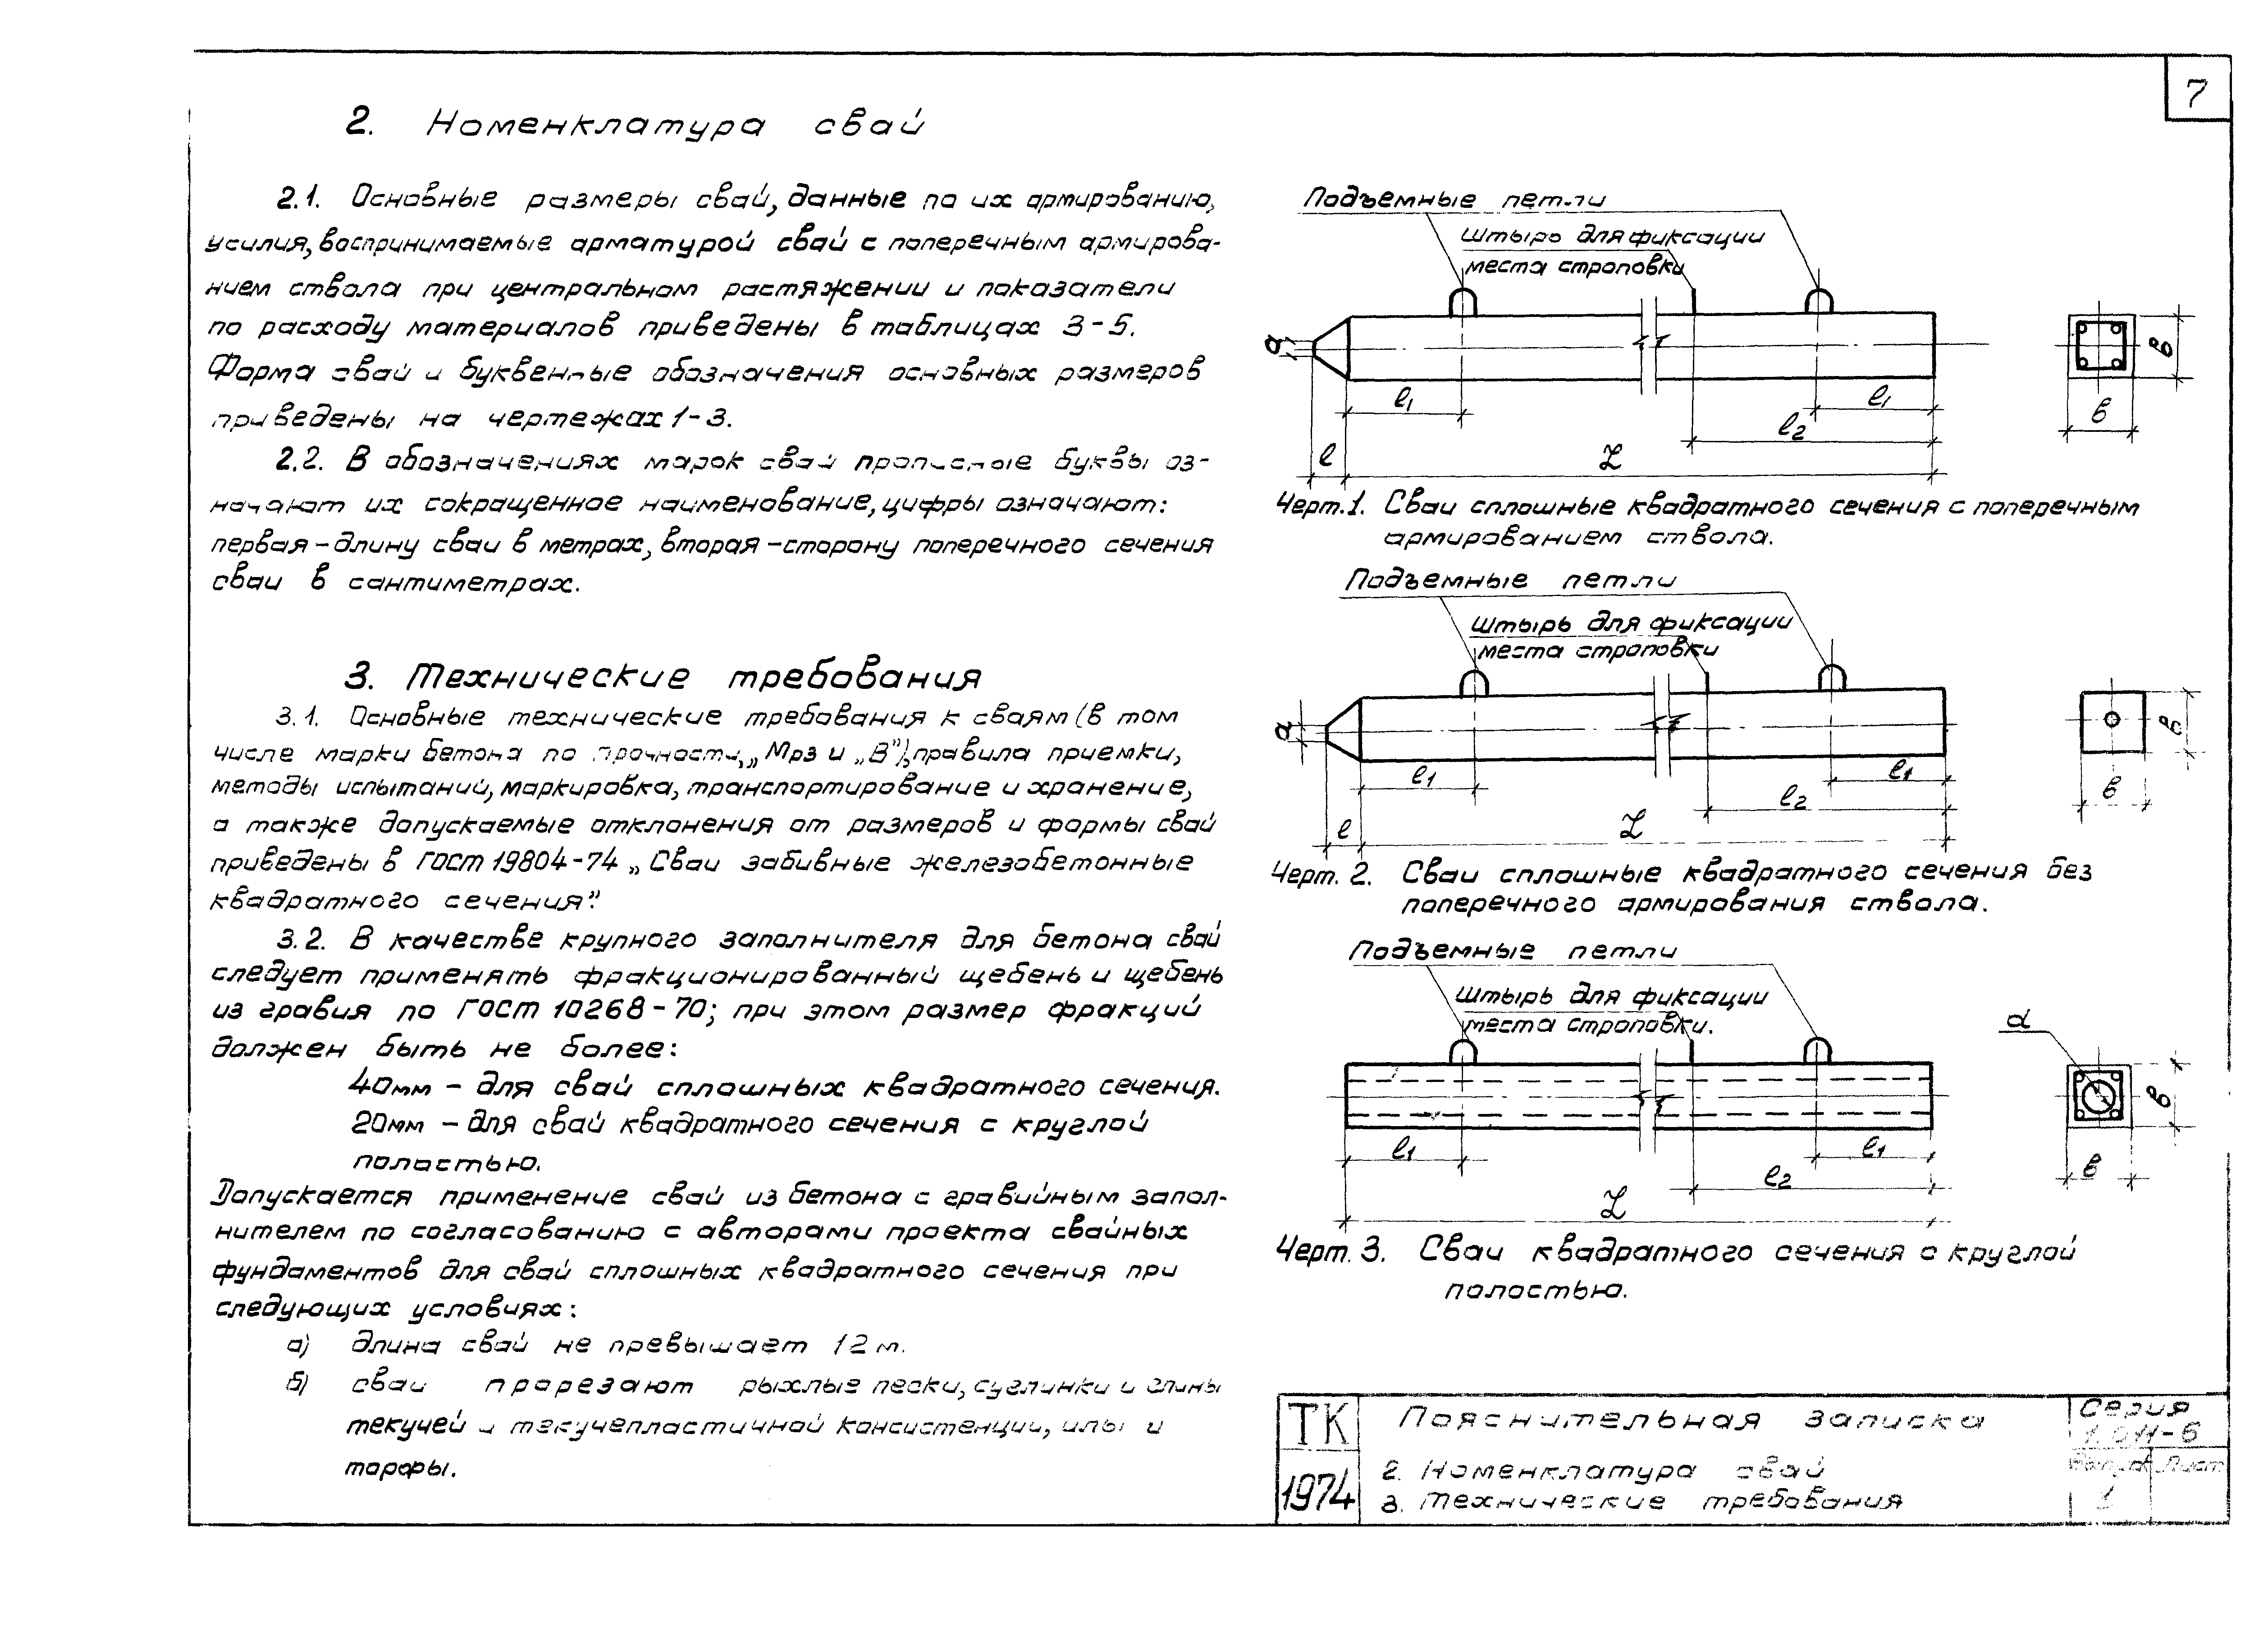 7
2. Номенклатура свай
2.1. Основные размеры свай, данные по их армированию,
усилия, воспринимаемые арматурой свай с поперечным армирова-
нием ствола при центральном растяжении и показатели
по расходу материалов приведены в таблицах 3-5.
Форма свай и буквенные обозначения основных размеров
приведены на чертежах 1-3.
2.2. В обозначениях марок свай прописные буквы оз-
начают их сокращенное наименование, цифры означают:
первая - длину сваи в метрах, вторая - сторону поперечного сечения
сваи в сантиметрах.
3. Технические требования
3.1. Основные технические требования к сваям (в том
числе марки бетона по прочности, „Мрз и „В"), правила приемки,
методы испытаний, маркировка, транспортирование и хранение,
а также допускаемые отклонения от размеров и формы свай
приведены в ГОСТ 19804-74 „Сваи забивные железобетонные
квадратного сечения".
3.2. В качестве крупного заполнителя для бетона свай
следует применять фракционированный щебень и щебень
из гравия по ГОСТ 10268-70; при этом размер фракций
должен быть не более:
40мм - для свай сплошных квадратного сечения.
20мм - для свай квадратного сечения с круглой
полостью.
Допускается применение свай из бетона с гравийным запол-
нителем по согласованию с авторами проекта свайных
фундаментов для свай сплошных квадратного сечения при
следующих условиях:
а) длина свай не превышает 12 м.
б) сваи прорезают рыхлые пески, суглинки и глины
текучей и текучепластичной консистенции, илы и
торфы.
Подъемные петли
Штырь для фиксации
места строповки
а
в
l1
l1
в
l2
l
L
Черт.1. Сваи сплошные квадратного сечения с поперечным
армированием ствола.
Подъемные петли
Штырь для фиксации
места строповки
а
в
l1
l1
в
l2
l
L
Черт. 2. Сваи сплошные квадратного сечения без
поперечного армирования ствола.
Подъемные петли
Штырь для фиксации
места строповки.
d
в
l1
l1
в
l2
L
Черт. 3. Сваи квадратного сечения с круглой
полостью.
ТК
1974
Пояснительная записка
2. Номенклатура свай
3. Технические требования
Серия
1.011-6
Выпуск Лист
1